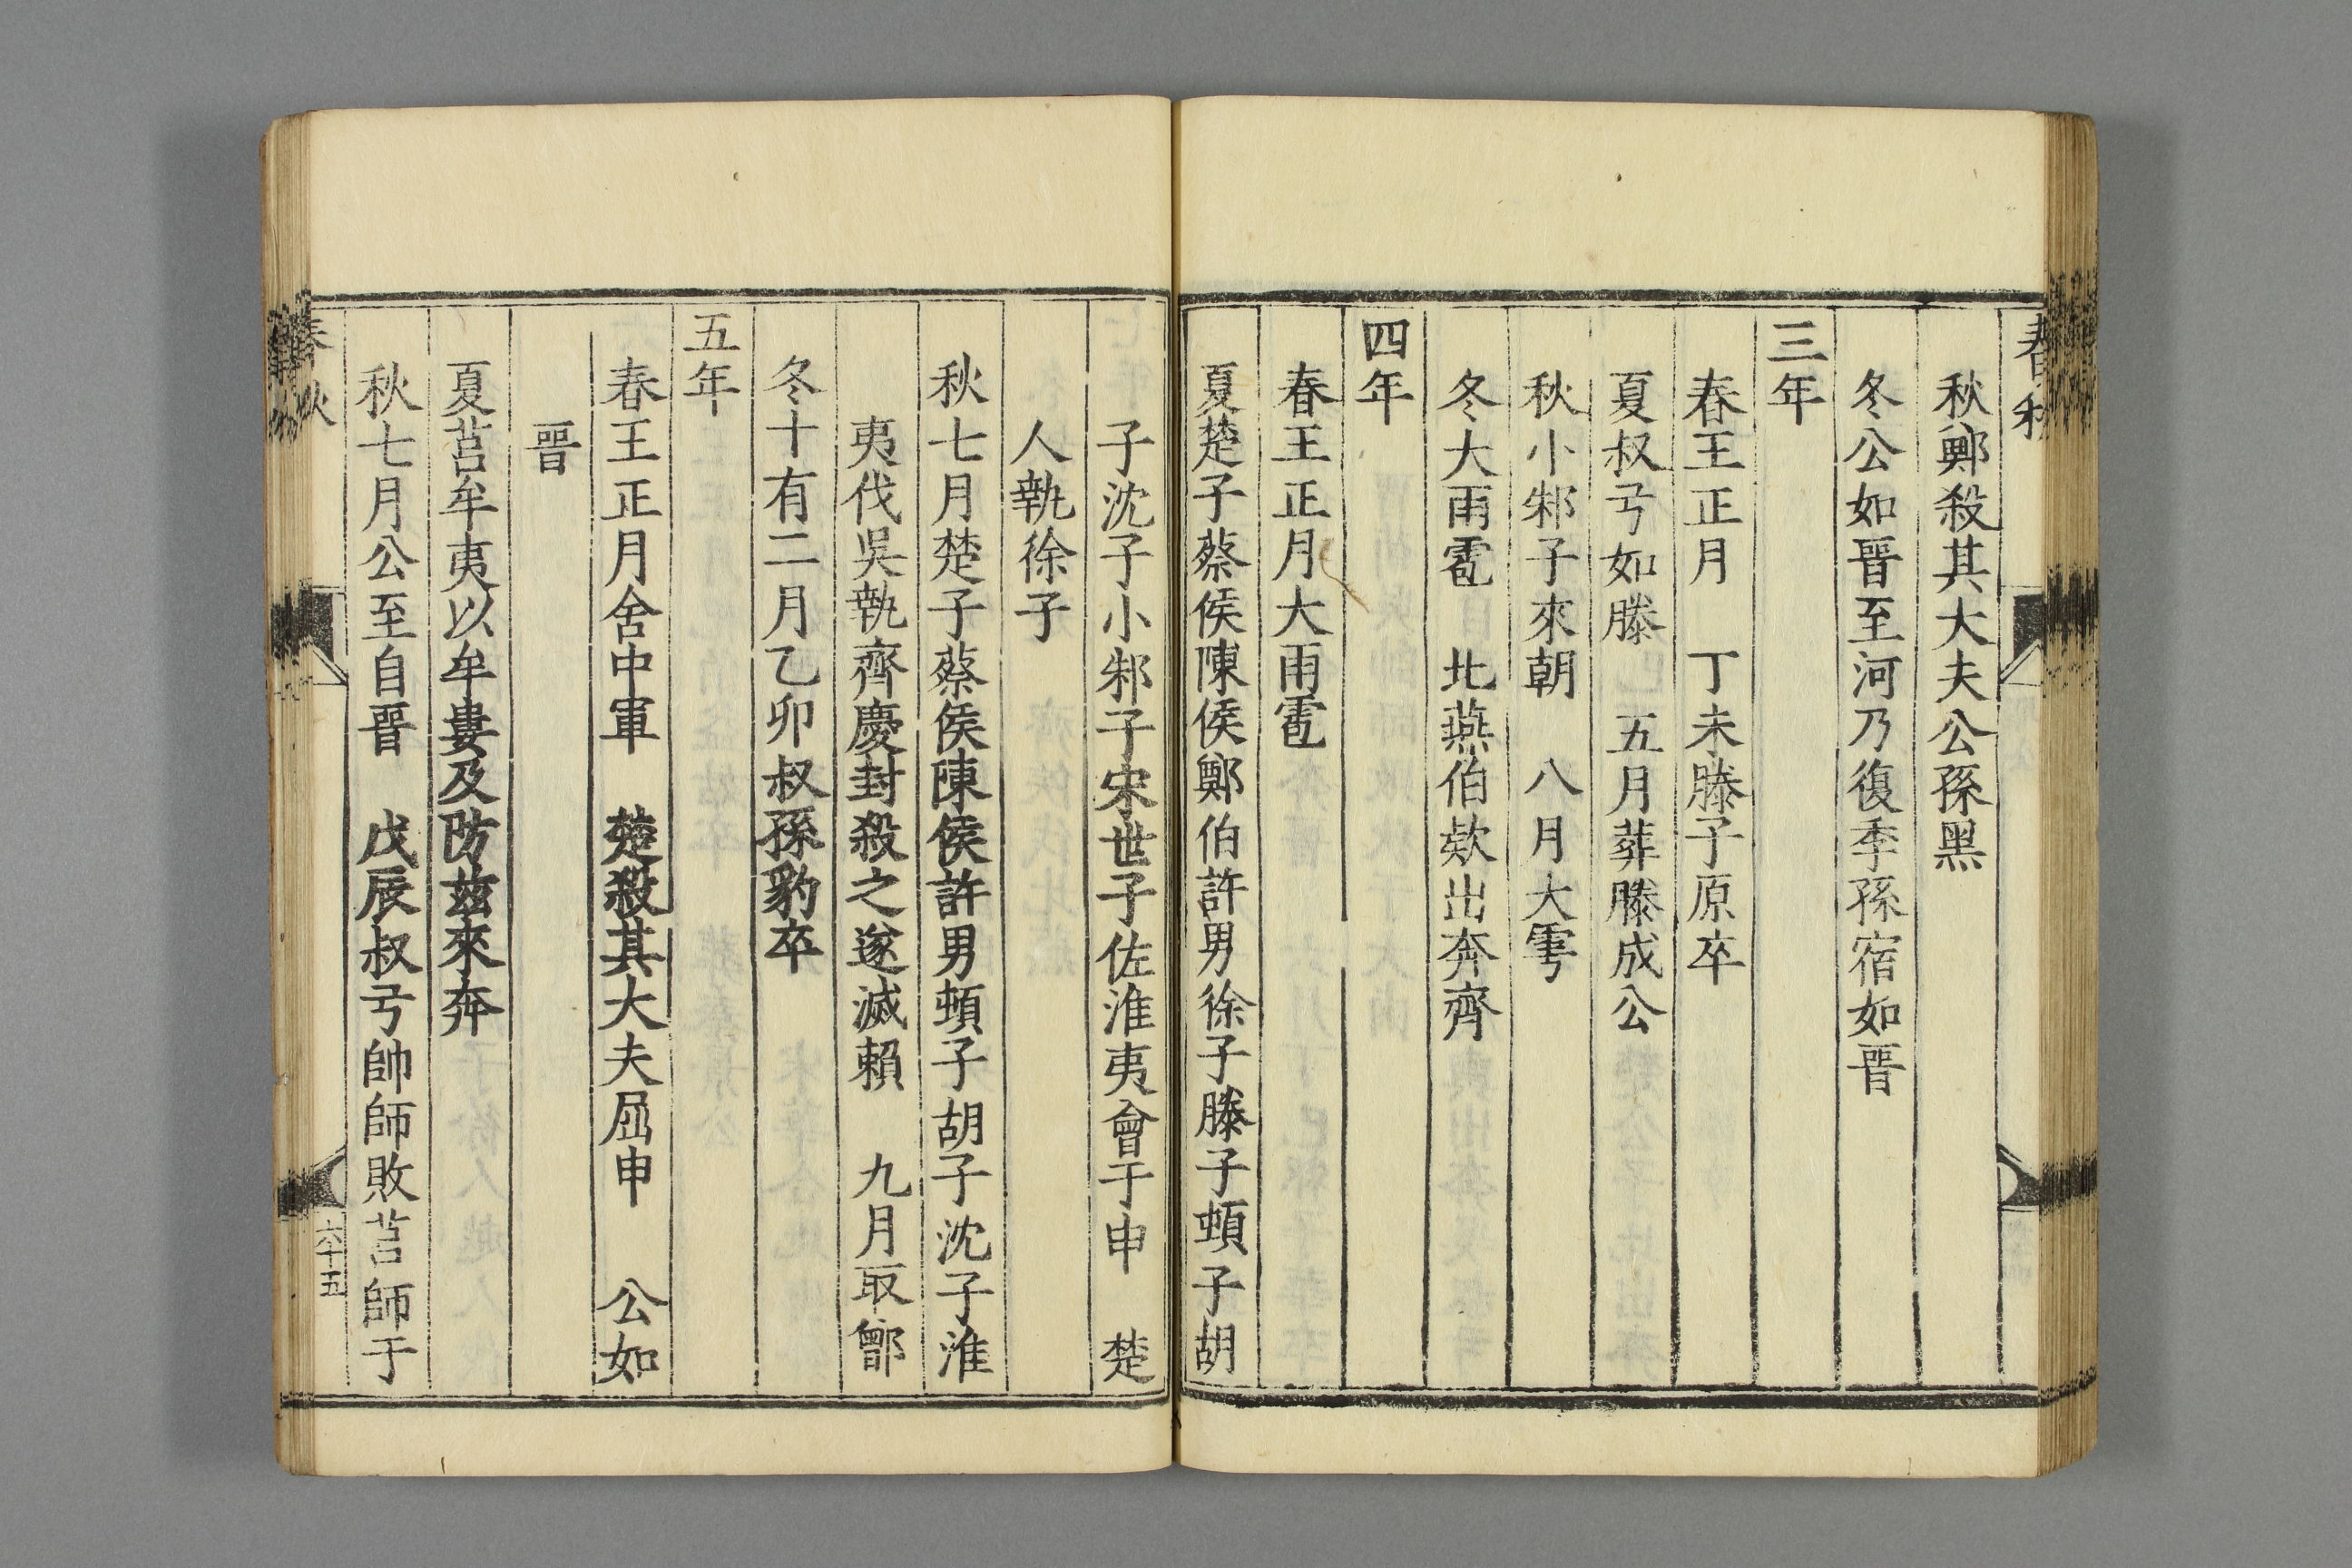 春秋
秋鄭殺其大夫公孫黑
冬公如晉至河乃復季孫宿如晉
三年
春王正月　丁未滕子原卒
夏叔弓如滕　五月葬滕成公
秋小邾子來朝　八月大雩
冬大雨雹　北燕伯欵出奔齊
四年
春王正月大雨雹
夏楚子蔡侯陳侯鄭伯許男徐子滕子頓子胡
子沈子小邾子宋世子佐淮夷會于申　楚
人執徐子
秋七月楚子蔡侯陳侯許男頓子胡子沈子淮
夷伐吳執齊慶封殺之遂滅賴　九月取鄫
冬十有二月乙卯叔孫豹卒
五年
春王正月舍中軍　楚殺其大夫屈申　公如
晉
夏莒牟夷以牟婁及防茲來奔
秋七月公至自晉　戊辰叔弓帥師敗莒師于
春秋
六十五